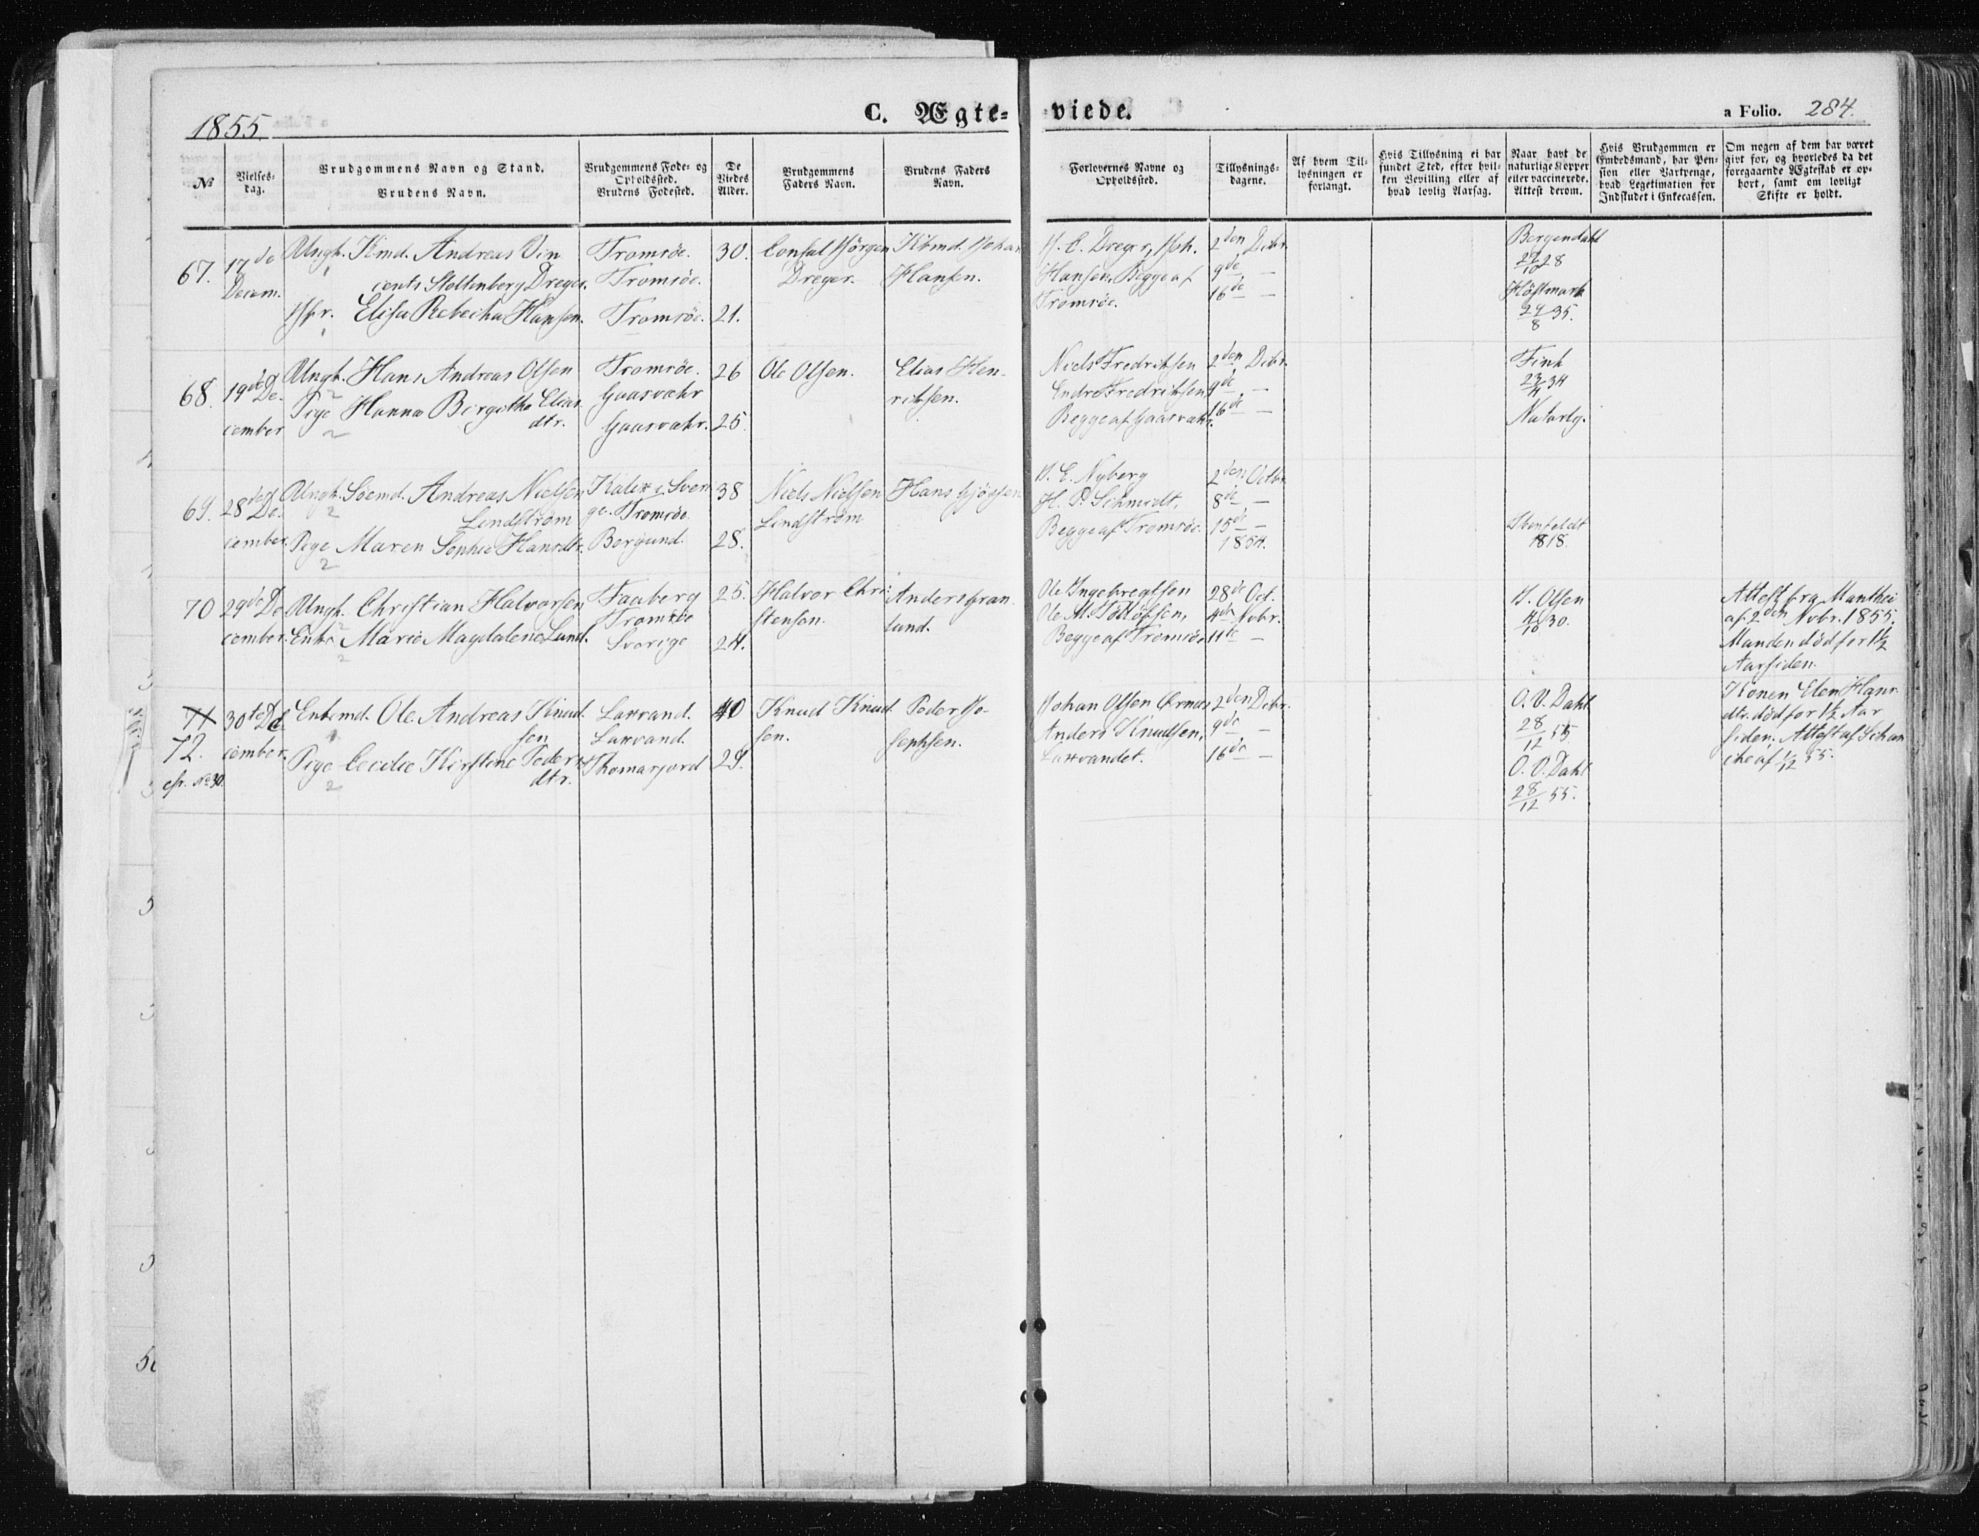 1855.
C. Ægte-viede.
a Folio. 284.
No
Vielses-dag.
Brudgommens Navn og Stand.
Brudens Navn.
Brudgommens Føde- og Opholdssted.
Brudens Fødested.
De Viedes Alder.
Brudgommens Faders Navn.
Brudens Faders Navn.
Forlovernes Navne og Opholdssted.
Tillysnings-dagene.
Af hvem Til-lysningen er forlangt.
Hvis Tillysning ei har fundet Sted, efter hvil-ken Bevilling eller af hvad lovlig Aarsag.
Naar havt de naturlige Kopper eller vaccinerede. Attest derom.
Hvis Brudgommen er Embedsmand, har Pen-sion eller Vartpenge, hvad Legetimation for Indskudet i Enkecassen.
Om nogen af dem har været givt for, og hvorledes da det foregaaende Ægteskab er op-hørt, samt om lovligt Skifte er holdt.
67. 17de Decem.
Ungk. Kmd. Andreas Vin
cents Stoltenberg Dreyer.
Jfr. Elisa Rebecka Hansen.
Tromsøe.
Tromsøe.
Tromsøe.
30.
21.
Consul Jörgen
Dreyer.
Kbmd. Johan
Hansen.
J. C. Dreyer, Joh.
Hansen, Begge af
Tromsøe.
2den Decbr.
9de —
16de —
Bergendahl
27/10 28
Höstmark
24/8 35.
68. 19de De-
cember
Ungk. Hans Andreas Olsen
2
Pige Hanna Bergitha Elias
dtr.
2
Tromsøe.
Gaasvahr
Gaasvahr.
26
25.
Ole Olsen.
Elias Hen-
riksen.
Niels Fredriksen
Endre Fredriksen,
Begge af Gaasvahr.
2den Decbr.
9de —
16de —
Fink
23/4 34
Naturlg.
69. 28de De-
cember
Ungk. Søemd. Andreas Nielsen
2
Lindström
Pige Maren Sophie Hansdtr.
2
Kalix i Sver
ge. Tromsöe
Borgund.
38
28.
Niels Nielsen
Lindström
H. P. Schmidt,
Begge af Tromsøe.
2den Octbr.
8de —
15de —
1854.
1818.
70 29de De
cember.
Ungk. Christian Halvorsen
2
Enke Maria Magdalena Lund.
2
Faaberg
Tromsöe
Sverige
25.
24.
Halvor Chri
stensen.
Anders Gran
lund.
Ole Ingebregtsen
Begge af Tromsøe.
28de Oct.
4de Novbr.
11te —
J. Olsen
4/10 30.
Attest fra Manthei
af 2den Novbr. 1855.
Manden död for 1½
Aar siden.
71
72.
cfr. No 30.
30te De
cember.
Enkemd. Ole Andreas Knud
sen
Pige Cecilie Kirstine Peders
dtr.
2
Laxvand.
Laxvand.
Thomasjord
40
29.
Knud Knud
sen.
Peder Jo-
sephsen.
Johan Olsen Ornæs
Anders Knudsen,
Laxvandet.
2den Decbr.
9de —
16de —
O. V. Dahl
28/12 55
O. V. Dahl
28/12 55.
Konen Elen Hans
dtr. död for 1½ Aar
siden. Attest af Schan